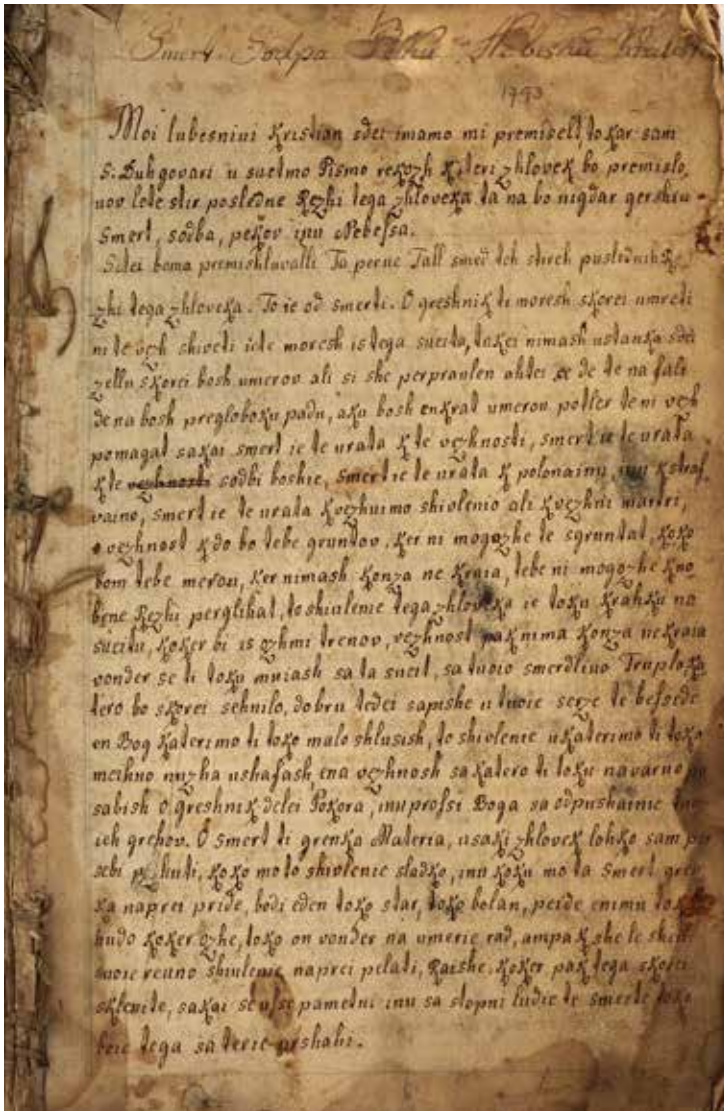 Smert. Sodpa Peku Nebeshku
1793
Moi lubesnini Kristian sdei imamo mi premiselt, tokar sam
S. Duhgovari u suetmo Pismo rekozh Kateri zhlovek bo premislo,
uov lete stir posledne Rezhi tega zhloveka ta na bo nigdar gershiu
Smert, sodba, pekov inu Nebessa.
Sdei boma premishluvalli Ta perue Tall smed teh shireh puslednih Re
zhi tega zhloveka. To ie od smerti. O greshnik ti moresh skorei umreti
ni te vezh shiveti iete moresh is tega sueita, tokei nimash ustanka sdei
zellu skorei bosh umerov ali si she perpraulen ahtei se de te na fali
de na bosh pregloboku padu, aku bosh enkrat umerou potler te ni vezh
pomagat sakai smert ie te urata k te vezhnosti, smert ie te urata
k te vezhnosti sodbi boshie, smert ie te urata k polonainu, inu kstraf
vaino, smert ie te urata kvezhnimo shivlenio ali kvezhni martri,
o vezhnost kdo bo tebe gruntov, ker ni mogozhe te sgruntat, koko
bom tebe merou, ker nimash konza ne kraia, tebe ni mogozhe kno
bene Rezhi perglihat, to shiulenie tega zhloveka ie toku kratku na
sueitu, koker bi is ozhmi trenov, vezhnost pak nima konza ne kraia
vonder se ti toku muiash sa ta sueit, sa tuoio smerdlivo Truplo ka
tero bo skorei sehnilo, dobru tedei sapishe u tuoie serze te besede
en Bog katerimo ti toko malo shlusish, to shivlenie ukaterimo ti toko
meihno nuzha ushafash, ena vezhnosh sakatero ti toku navarno po
sabish O greshnik delei Pokora, inu profsi Boga sa odpushainie tuo
ieh grehov. O Smert ti grenka Materia, usaki zhlovek lohko sam per
sebi pozhuti, koko mo to shivlenie sladko, inu koku mo ta Smert gren
ka naprei pride, bodi eden toko star, toko bolan, peide enimu toku
hudo koker ozhe, toko on vonder na umerie rad, ampak she le sheli
suoie reuno shiulenie naprei pelati, Raishe, koker pak tega skorei
sklenite, sakai se use pametni inu sa stopni ludie te smerte toko
boie tega sa terie urshahi.